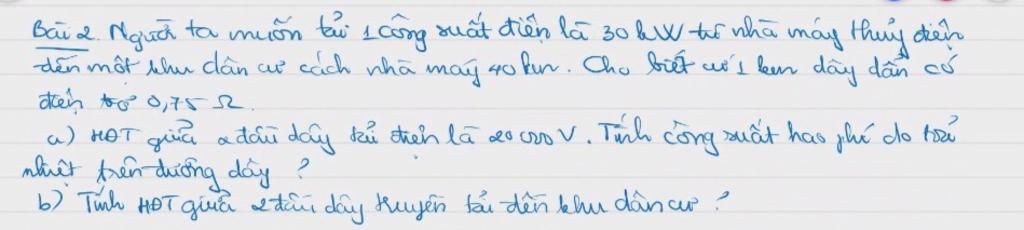 Bài 2. Người ta muốn tải 1 công suất điện là 30 kW từ nhà máy thuỷ điện
đến một khu dân cư cách nhà máy 40 km. Cho biết cứ 1 km dây dẫn có
điện trở 0,75 Ω.
a) HĐT giữa 2 đầu dây tải điện là 20 000 V. Tính công suất hao phí do toả
nhiệt trên đường dây ?
b) Tính HĐT giữa 2 đầu dây truyền tải đến khu dân cư ?